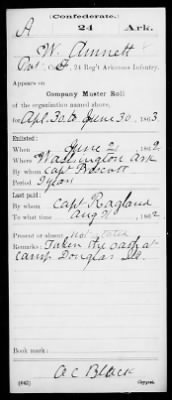 Confederate.
A 24 Ark.
W. Annett
Pvt, Co. 24 Reg't Arkansas Infantry.
Appears on
Company Muster Roll
of the organization named above,
for Apl. 30 to June 30, 1863
Enlisted:
When June 21, 1862
Where Washington Ark
By whom Capt Prescott
Period 3 years
Last paid:
By whom Capt Ragland
To what time Aug 31, 1862
Present or absent Not stated
Remarks: Taken the oath at
Camp Douglas Ill.
Book mark:
A C Black
(642) Copyist.